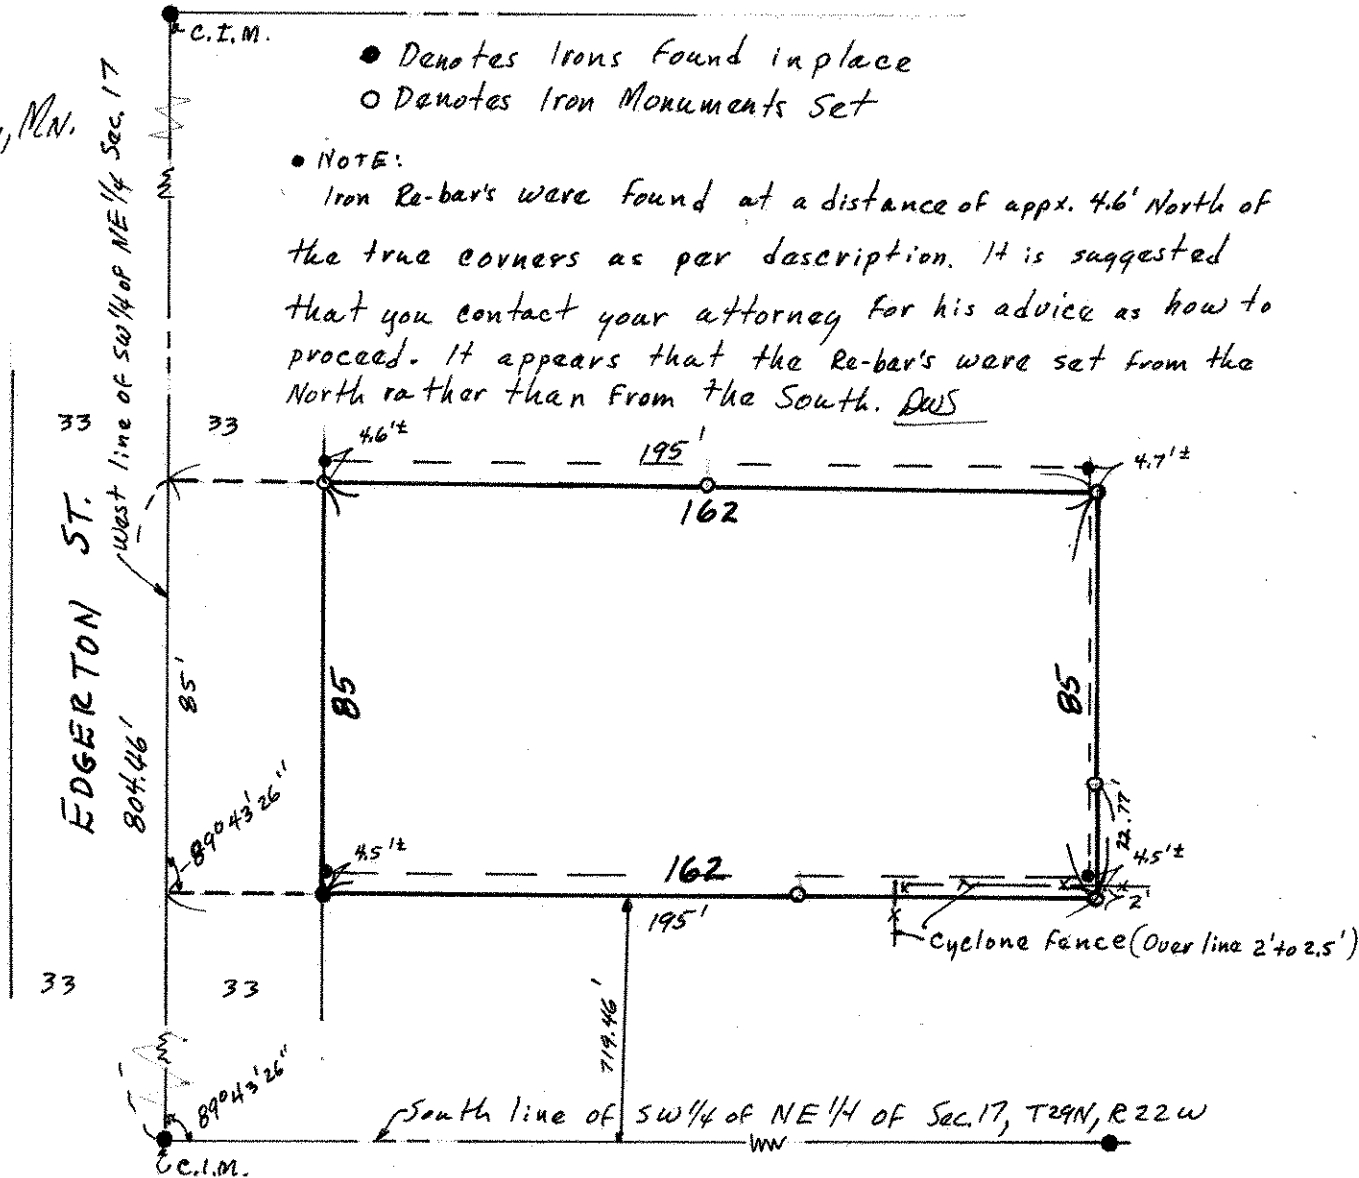 C.I.M.
● Denotes Irons Found in place
○ Denotes Iron Monuments Set
, MN.
● NOTE:
Iron Re-bar's were found at a distance of appx. 4.6' North of
the true corners as per description. It is suggested
that you contact your attorney for his advice as how to
proceed. It appears that the Re-bar's were set from the
North rather than From the South. DWS
West line of SW 1/4 of NE 1/4 Sec. 17
33
33
4.6'±
195'
4.7'±
162
EDGERTON ST.
804.46'
85'
85
85
22.77'
89°43'26"
4.5'±
162
4.5'±
2'
195'
Cyclone Fence (Over line 2' to 2.5')
33
33
719.46'
89°43'26"
South line of SW 1/4 of NE 1/4 of Sec. 17, T29N, R22W
C.I.M.